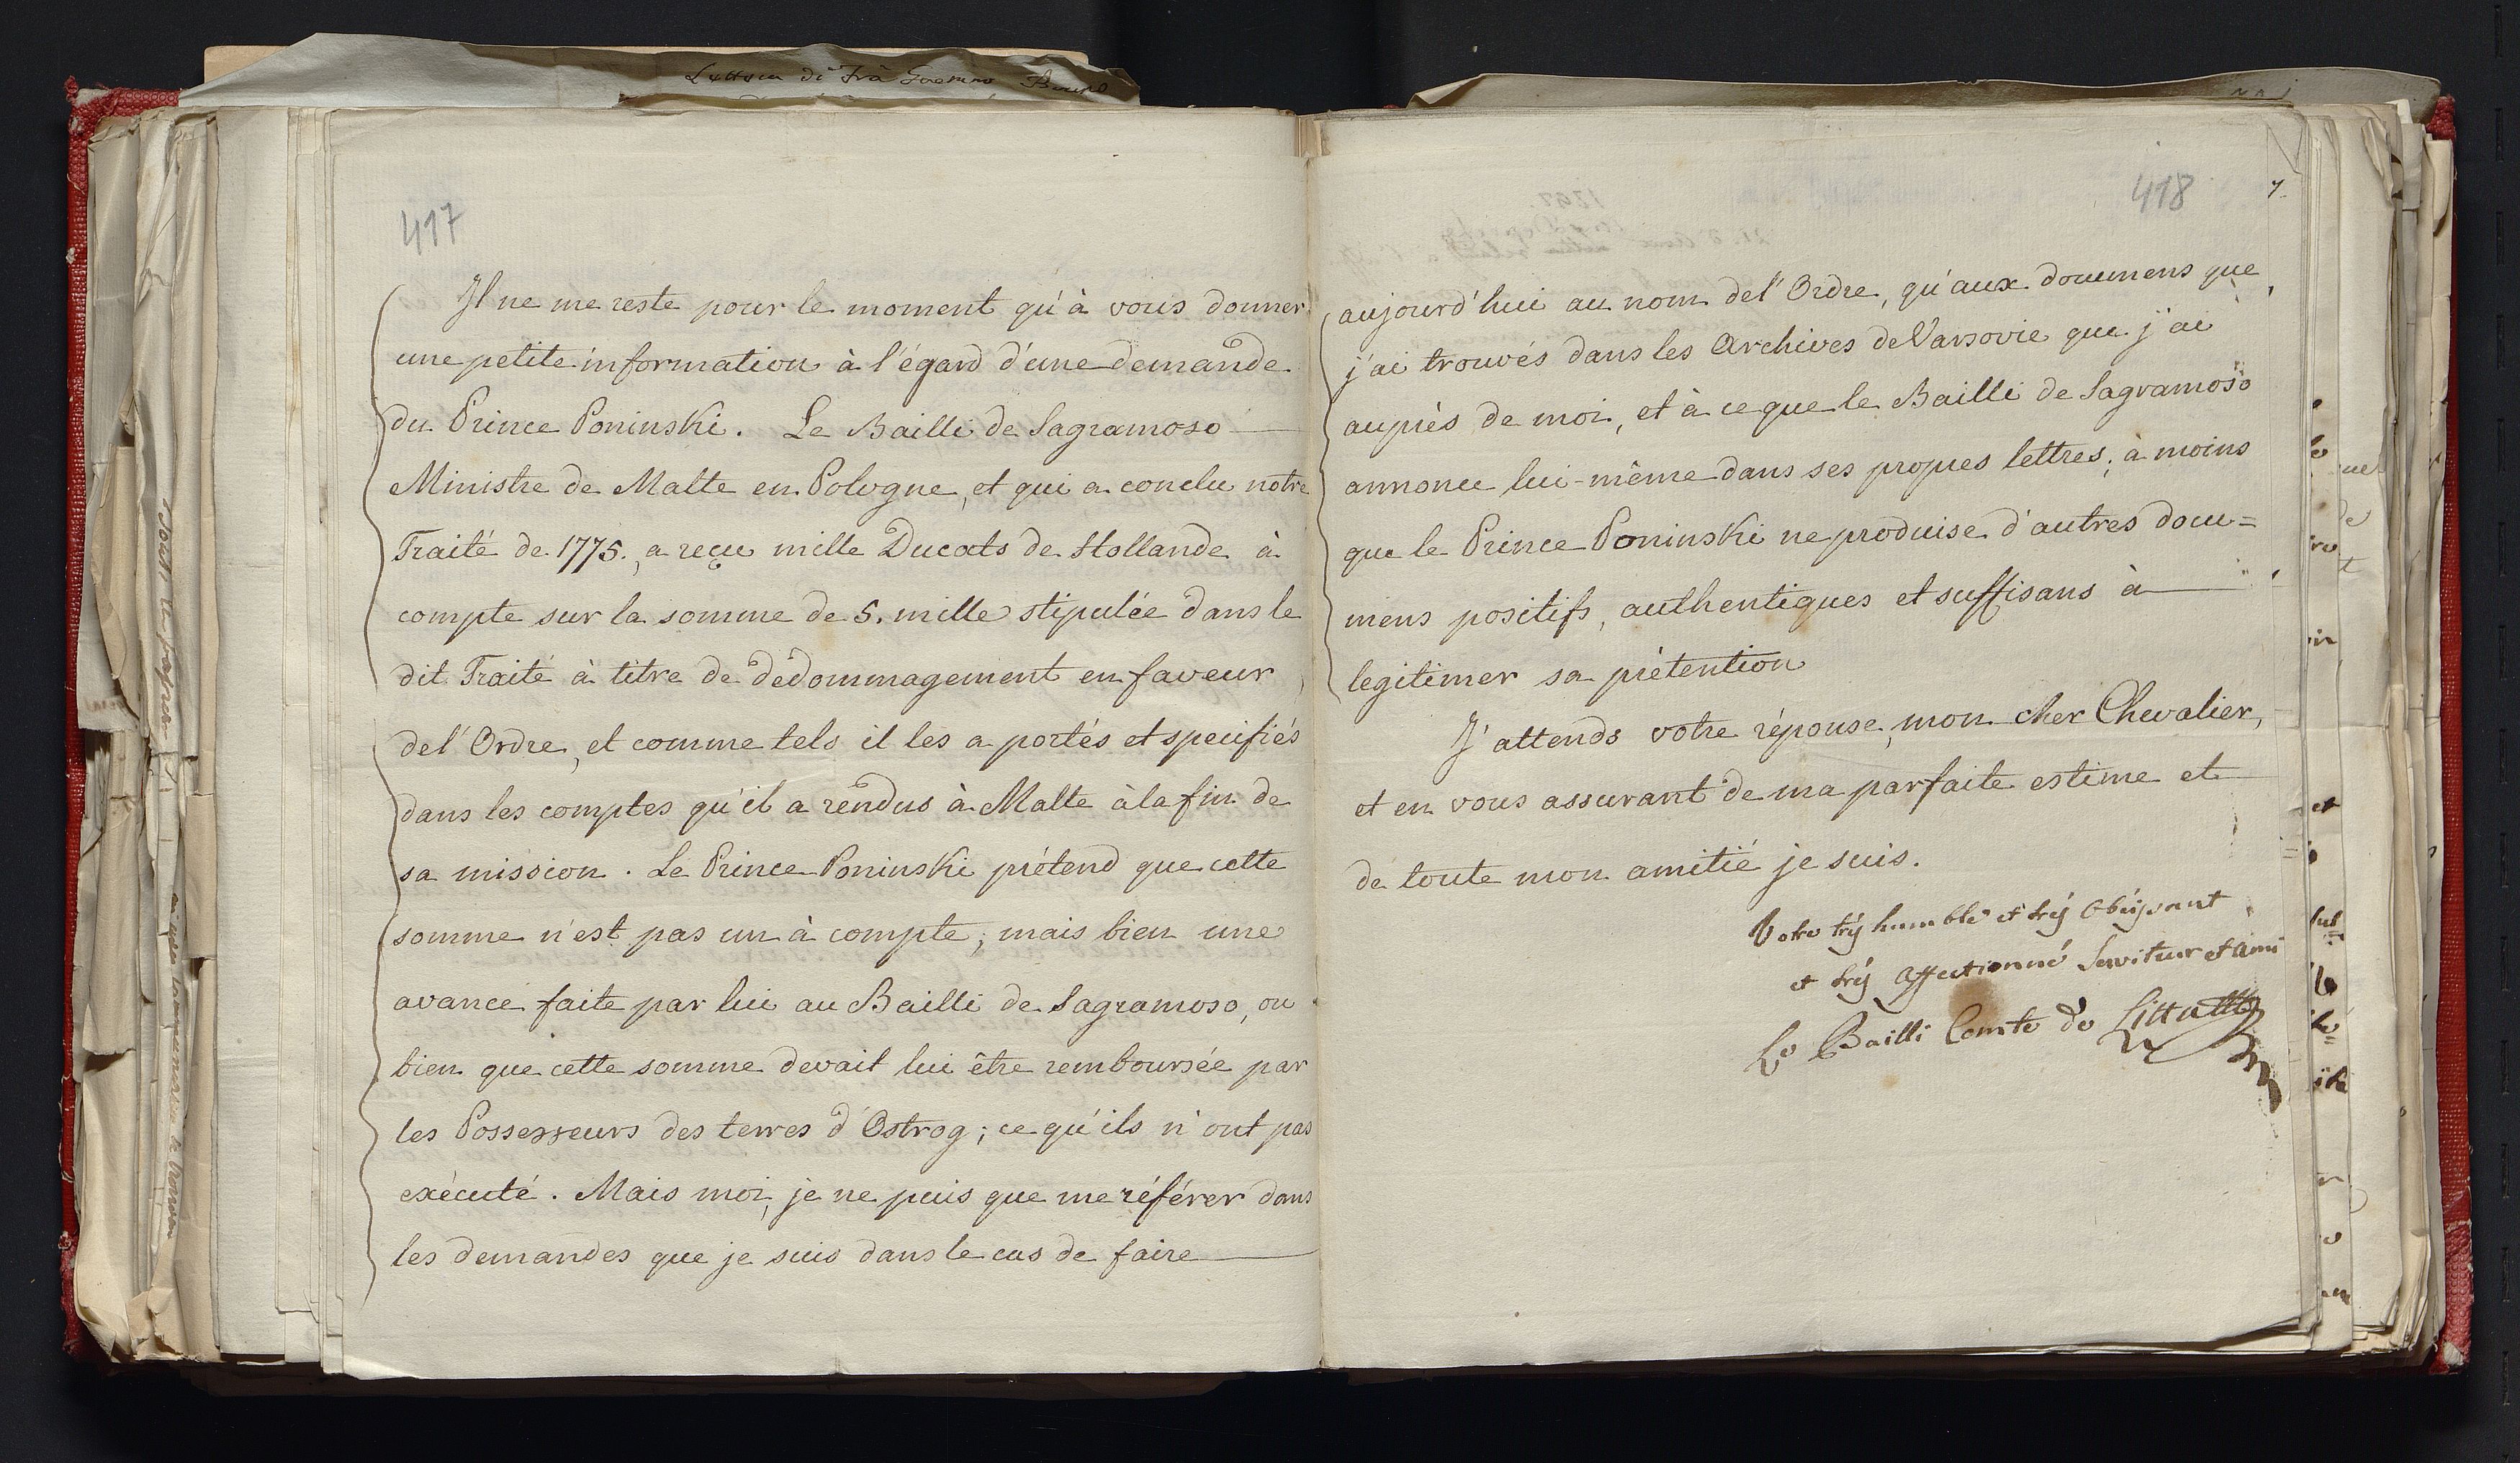 417
Il ne me reste pour le moment qu'à vous donner
une petite information à l'égard d'une demande
du Prince Poninski. Le Bailli de Sagramoso
Ministre de Malte en Pologne, et qui a conclu notre
Traité de 1775., a reçu mille Ducats de Hollande à
compte sur la somme de 5. mille stipulée dans le
dit Traité à titre de dédommagement en faveur
de l'Ordre, et comme tels il les a portés et specifiés
dans les comptes qu'il a rendus à Malte à la fin de
sa mission. Le Prince Poninski prétend que cette
somme n'est pas un à compte, mais bien une
avance faite par lui au Bailli de Sagramoso, ou
bien que cette somme devait lui être remboursée par
les Possesseurs des terres d'Ostrog; ce qu'ils n'ont pas
exécuté. Mais moi, je ne puis que me référer dans
les demandes que je suis dans le cas de faire
418
7
aujourd'hui au nom de l'Ordre, qu'aux documens que
j'ai trouvés dans les Archives de Varsovie que j'ai
auprès de moi, et à ce que le Bailli de Sagramoso
annonce lui-même dans ses propres lettres; à moins
que le Prince Poninski ne produise d'autres docu=
mens positifs, authentiques et suffisans à
legitimer sa prétention
J'attends votre réponse, mon cher Chevalier,
et en vous assurant de ma parfaite estime et
de toute mon amitié je suis.
Votre trés humble et trés obéissant
et trés affectionné Serviteur et ami
Le Bailli Comte de Litta